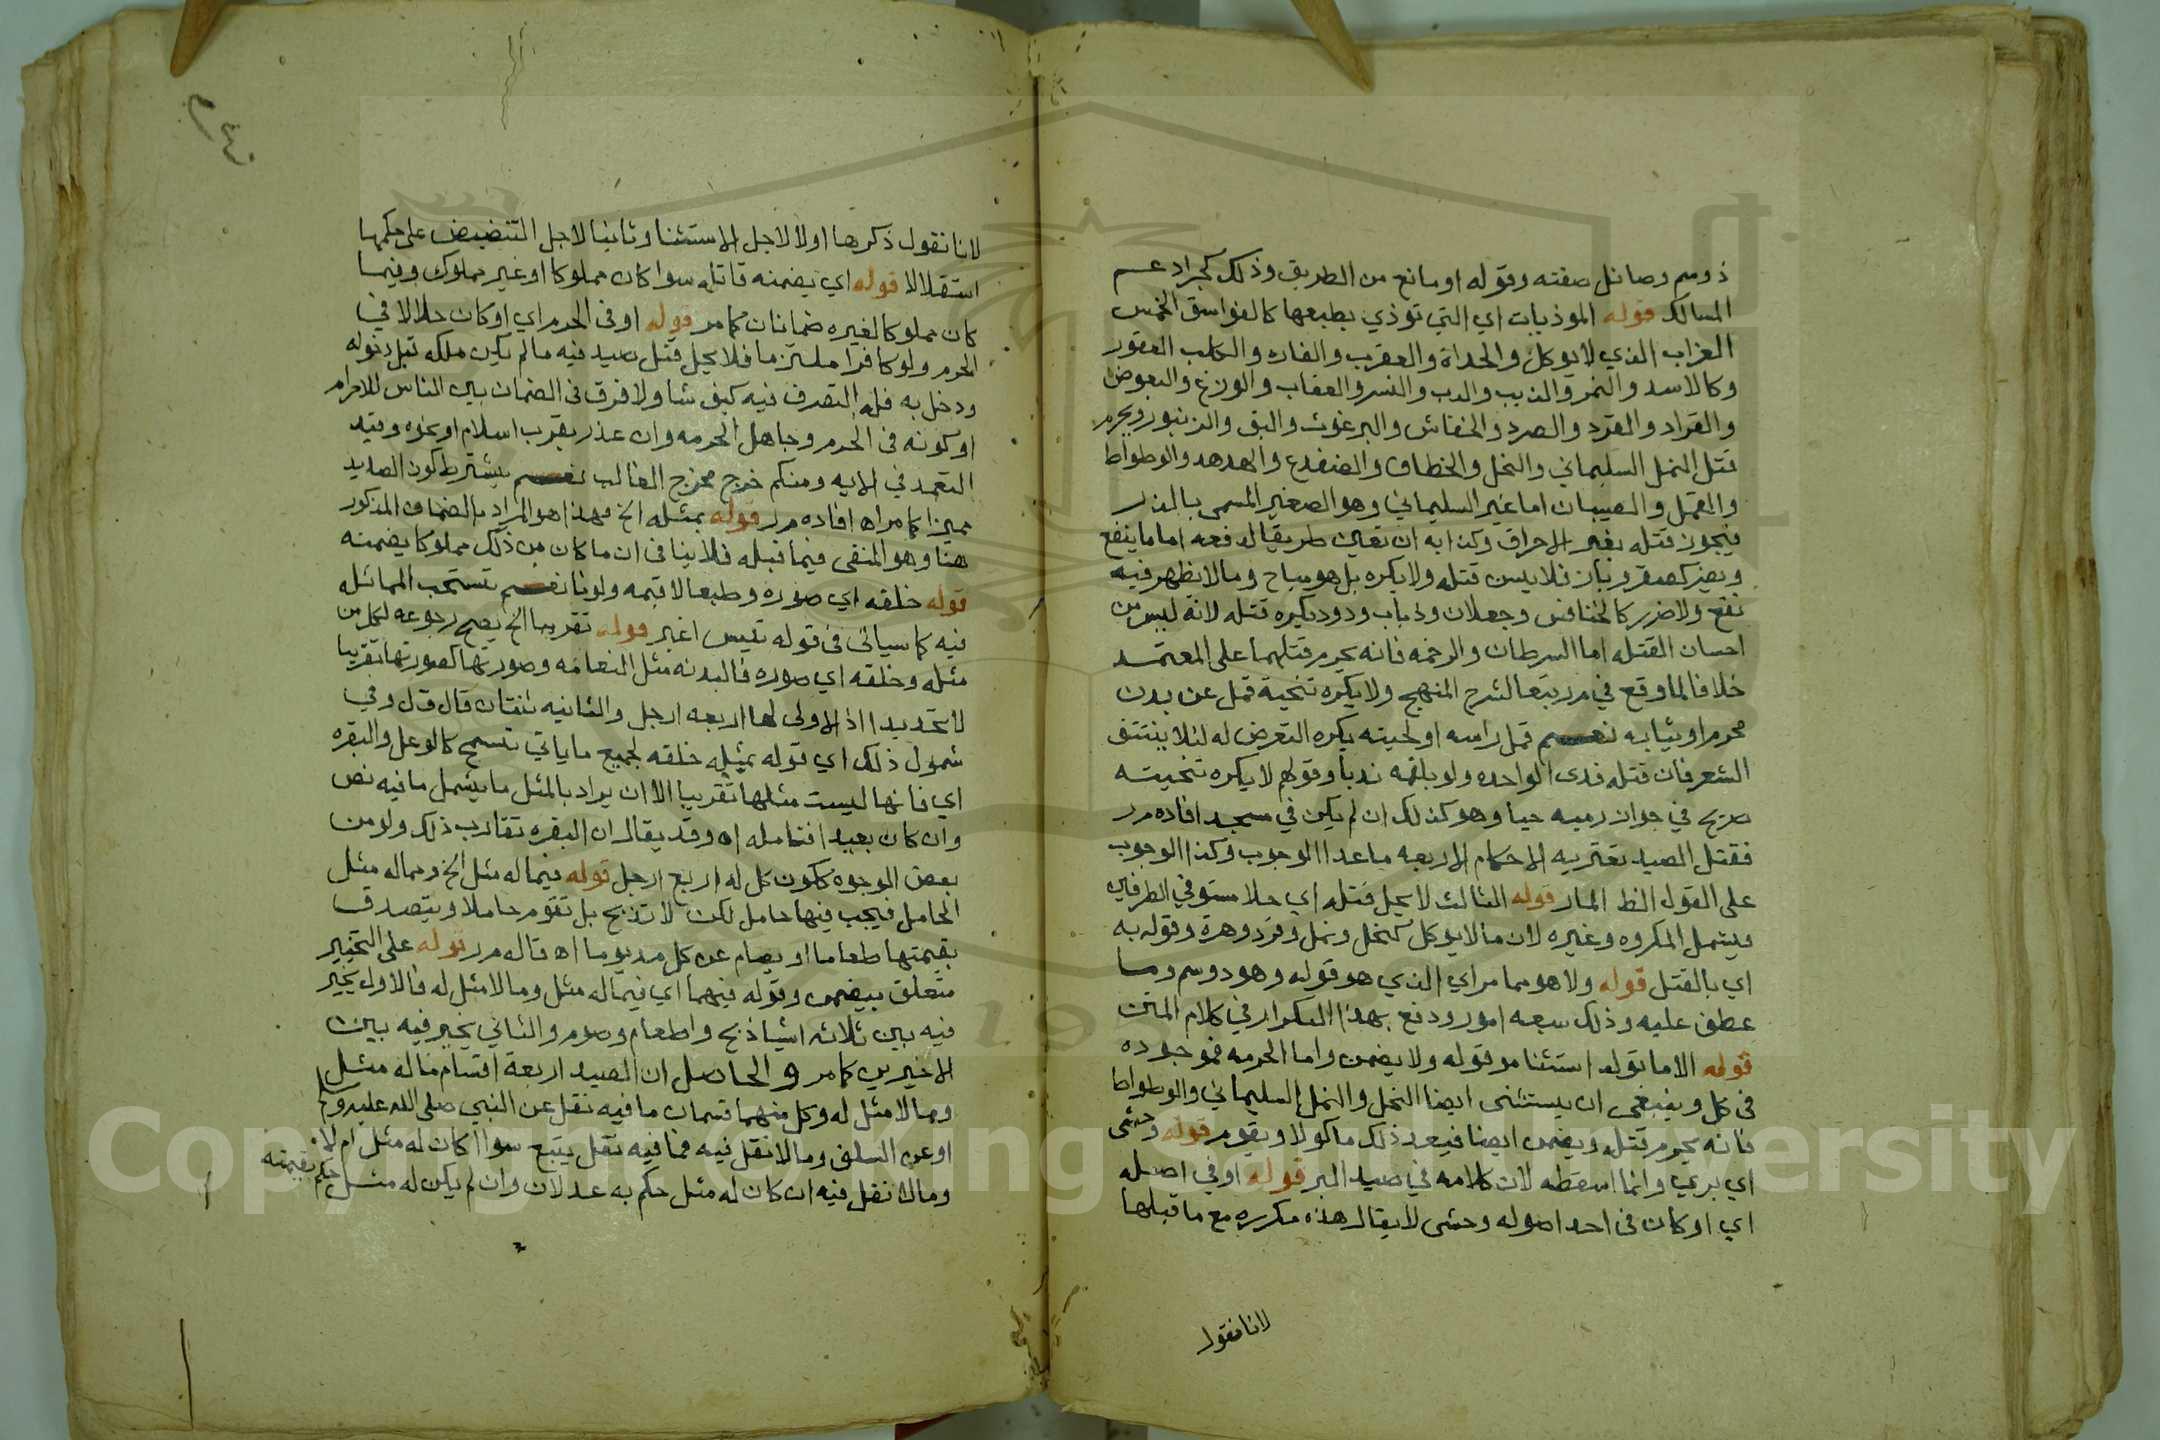 ذو سم وصائل صفته وقوله او مانع من الطريق وذلك كجراد عم
المسالك قوله الموذيات اي التي توذي بطبعها كالفواسق الخمس
الغراب الذي لا يوكل والحداة والعقرب والفاره والكلب العقور
وكالاسد والنمر والذيب والدب والنسر والعقاب والوزغ والبعوض
والقراد والقرد والصرد والخفاش والبرغوث والبق والزنبور ويحرم
قتل النمل السليماني والنحل والخطاف والضفدع والهدهد والوطواط
والقمل والصيبان اما غير السليماني وهو الصغير المسمى بالذر
فيجوز قتله بغير الاحراق وكذا به ان تعين طريقا لدفعه اما ما ينفع
ويضر كصقر وباز فلا يسن قتله ولا يكره بل هو مباح وما لا يظهر فيه
نفع ولا ضرر كالخنافس وجعلان وذباب ودود يكره قتله لانه ليس من
احسان القتله اما السرطان والرخمه فانه يحرم قتلهما على المعتمد
خلافا لما وقع في م ر تبعا لشرح المنهج ولا يكره تنحية قمل عن بدن
محرم او ثيابه نعم قمل راسه او لحيته يكره التعرض له لئلا ينتتف
الشعر فان قتله فدى الواحده ولو بلقمه ندبا وقولهم لا يكره تنحيته
صريح في جواز رميه حيا وهو كذلك ان لم يكن في مسجد افاده م ر
فقتل الصيد تعتريه الاحكام الاربعه ما عدا الوجوب وكذا الوجوب
على القول الظ المار قوله الثالث لا يحل قتله اي حلا مستوفي الطرفين
فيشمل المكروه وغيره لان ما لا يوكل كنحل ونمل وقرد وهرة وقوله به
اي بالقتل قوله ولا هو مما مر اي الذي هو قوله وهو ذو سم وما
عطف عليه وذلك سبعه امور ودفع بهذا التكرار في كلام المتن
قوله الا ما تولد استثنا من قوله ولا يضمن واما الحرمه فموجوده
في كل وينبغي ان يستثنى ايضا النحل والنمل السليماني والوطواط
فانه يحرم قتله ويضمن ايضا فيعد ذلك ماكولا ويقوم قوله وحشي
اي بري وانما اسقطه لان كلامه في صيد البر قوله او في اصله
اي او كان في احد اصوله وحشي لا يقال هذه مكرره مع ما قبلها
لانا نقول
لانا نقول ذكرها اولا لاجل الاستثنا وثانيا لاجل التنصيص على حكمها
استقلالا قوله اي يضمنه قاتله سوا كان مملوكا او غير مملوك وفيما
كان مملوكا لغيره ضمانان كما مر قوله او في الحرم اي او كان حلالا في
الحرم ولو كافرا ملتزما فلا يحل قتل صيد فيه ما لم يكن ملكه قبل دخوله
ودخل به فله التصرف فيه كيف شا ولا فرق في الضمان بين الناس للاحرام
او كونه في الحرم وجاهل الحرمه وان عذر بقرب اسلام او نحوه وقيد
التعمد في الايه ومنكم خرج مخرج الغالب نعم يشترط كون الصايد
مميزا كما مر اه افاده م ر قوله بمثله الخ فهذا هو المراد بالضمان المذكور
هنا وهو المنفى فيما قبله فلا ينافي ان ما كان من ذلك مملوكا يضمنه
قوله خلقه اي صوره وطبعا لا قيمه ولونا نعم تستحب المماثله
فيه كما سياتي في قوله تيس اغبر قوله تقريبا الخ يصح رجوعه لكل من
مثله وخلقه اي صوره فالبدنه مثل النعامه وصورتها كصورتها تقريبا
لا تحديدا اذ الاولى لها اربعه ارجل والثانيه ثنتان قال ق ل وفي
شمول ذلك اي قوله بمثله خلقه لجميع ما ياتي تسمح كالوعل والبقره
اي فانها ليست مثلها تقريبا الا ان يراد بالمثل ما يشمل ما فيه نص
وان كان بعيدا فتامله اه وقد يقال ان البقره تقارب ذلك ولو من
بعض الوجوه ككون كل له اربع ارجل قوله فيما له مثل الخ ومما له مثل
الحامل فيجب فيها حامل لكن لا تذبح بل تقوم حاملا ويتصدق
بقيمتها طعاما او يصام عن كل مد يوما اه قاله م ر قوله على التخيير
متعلق بيضمن وقوله فيهما اي فيما له مثل وما لا مثل له فالاول يخير
فيه بين ثلاثه اشيا ذبح واطعام وصوم والثاني يخير فيه بين
الاخيرين كما مر والحاصل ان الصيد اربعة اقسام ما له مثل
وما لا مثل له وكل منهما قسمان ما فيه نقل عن النبي صلى الله عليه وسلم
او عن السلف وما لا نقل فيه فما فيه نقل يتبع سوا اكان له مثل ام لا
وما لا نقل فيه ان كان له مثل حكم به عدلان وان لم يكن له مثل حكم بقيمته
Copyright © King Saud University